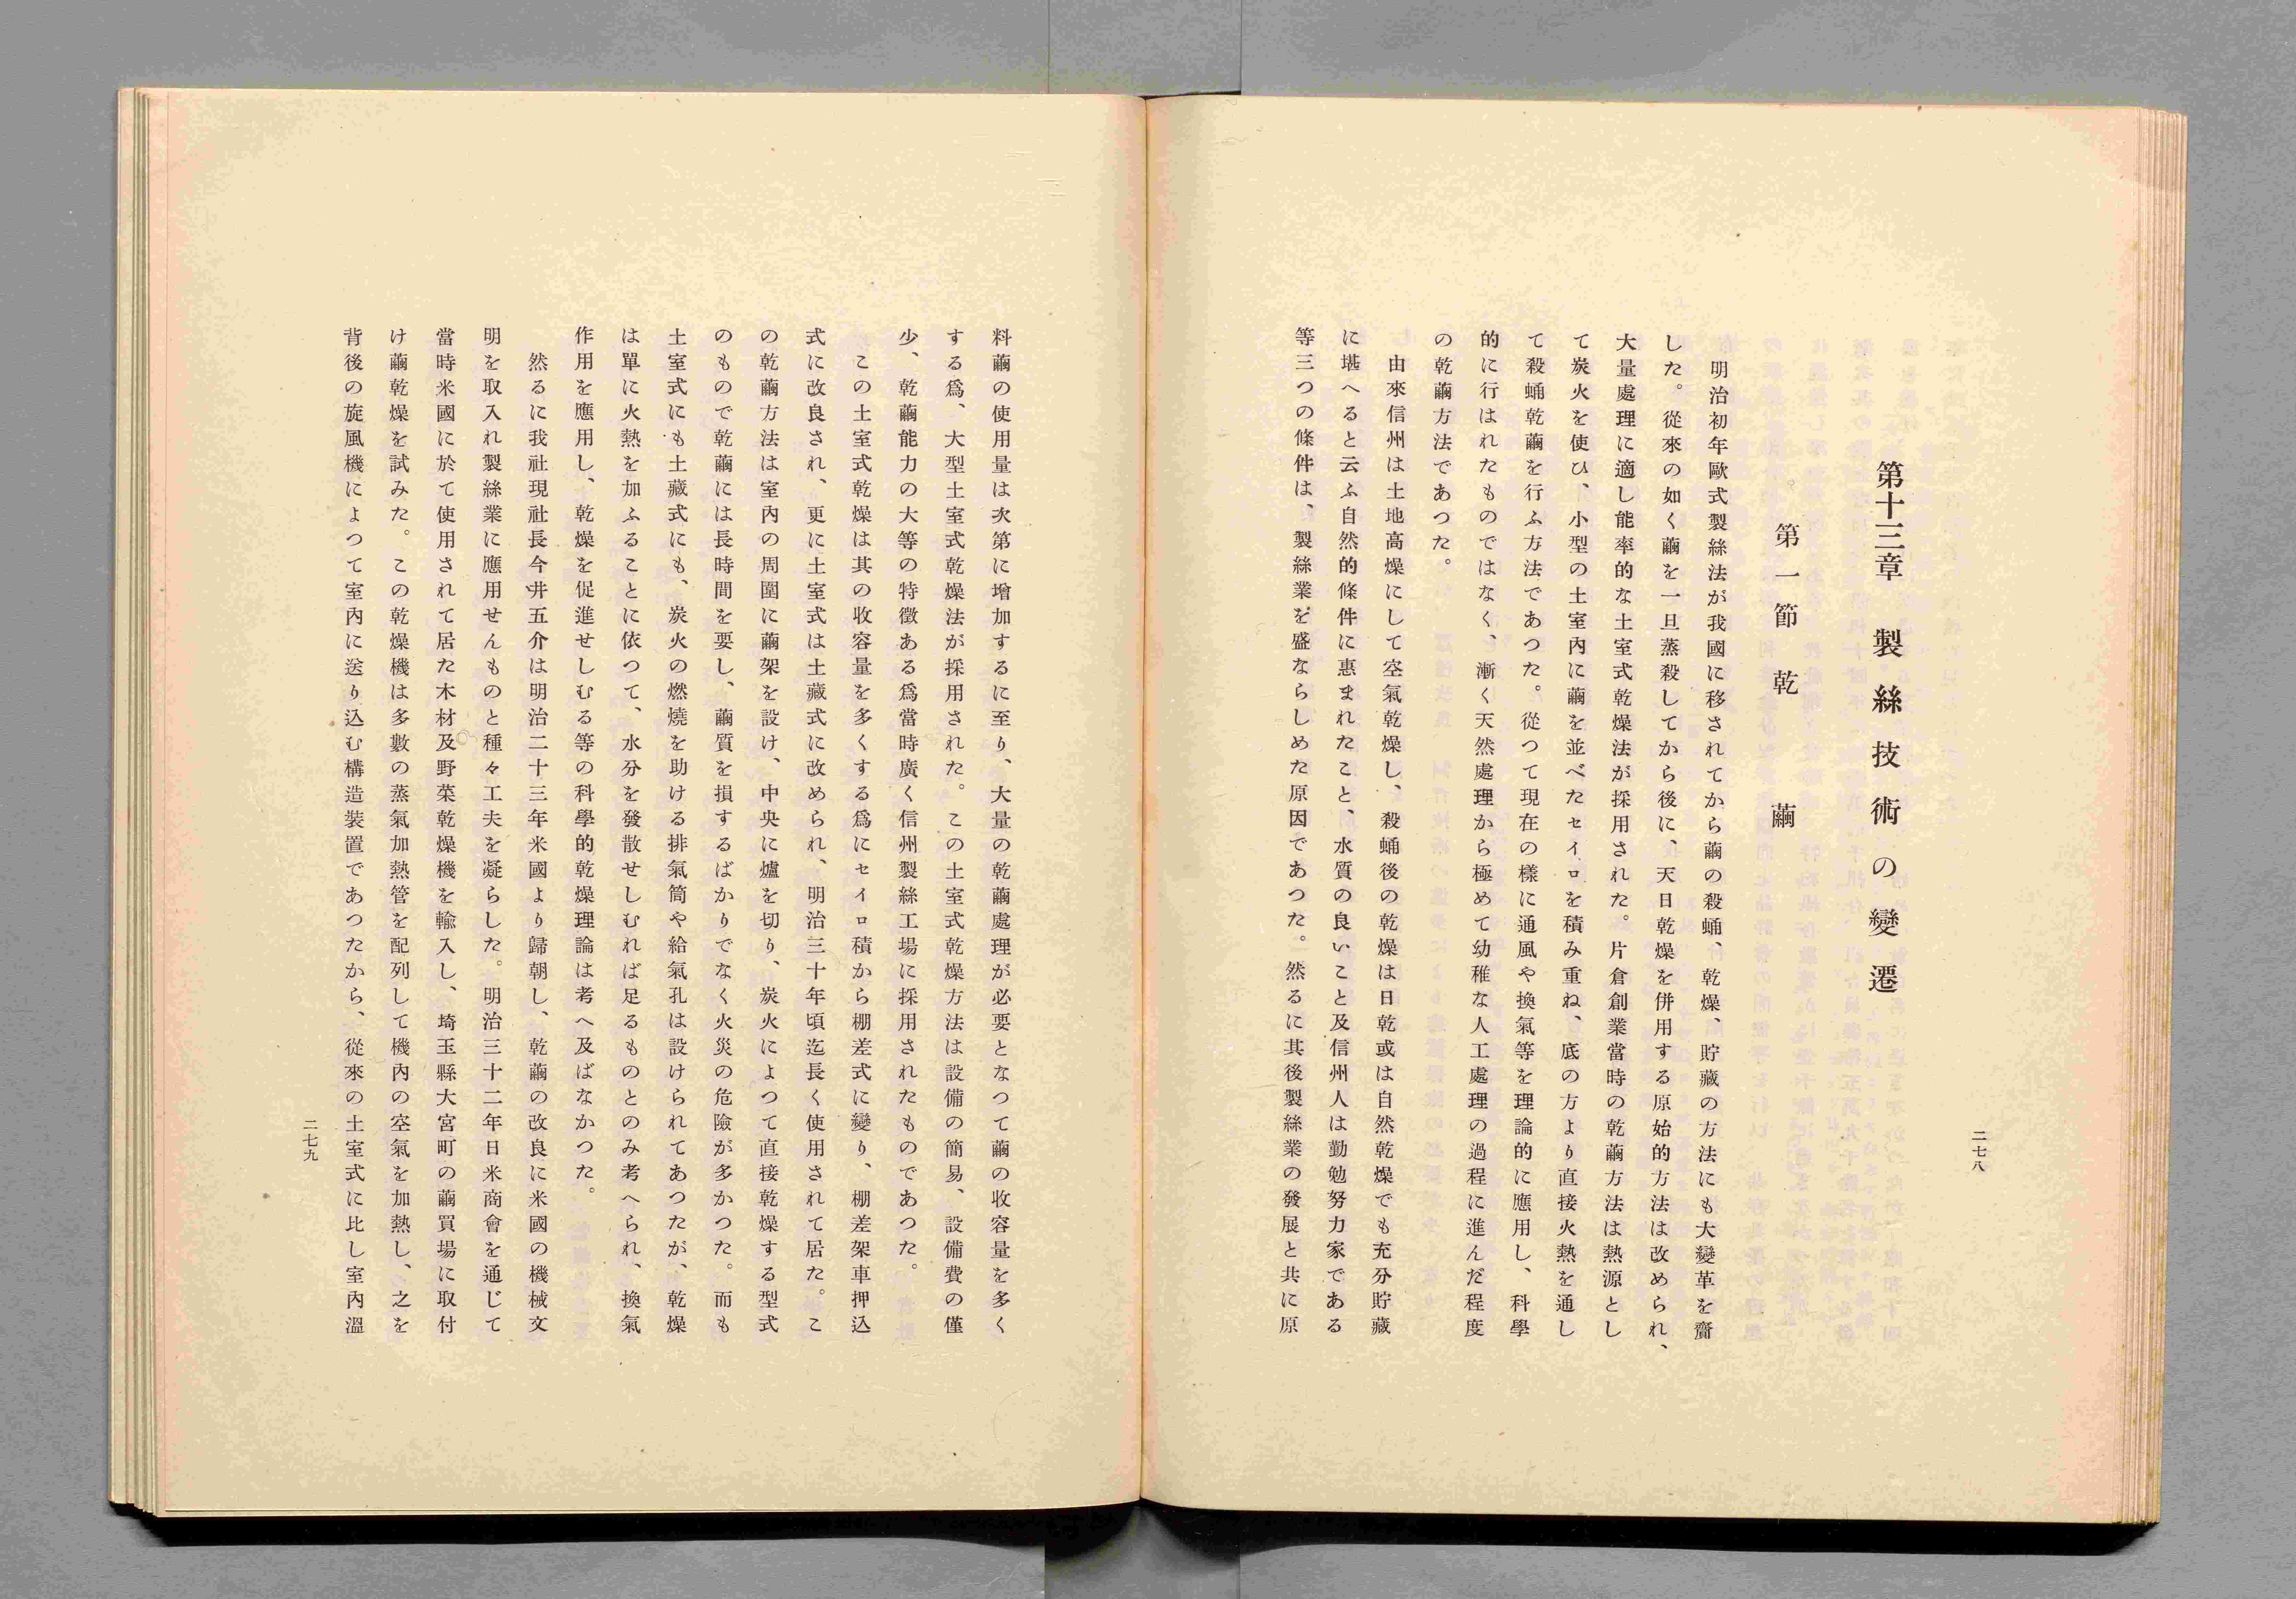 第十三章　製絲技術の變遷
第一節　乾　繭
明治初年歐式製絲法が我國に移されてから繭の殺蛹、乾燥、貯藏の方法にも大變革を齎
した。從來の如く繭を一旦蒸殺してから後に、天日乾燥を併用する原始的方法は改められ、
大量處理に適し能率的な土室式乾燥法が採用された。片倉創業當時の乾繭方法は熱源とし
て炭火を使ひ、小型の土室內に繭を並べたセイロを積み重ね、底の方より直接火熱を通し
て殺蛹乾繭を行ふ方法であつた。從つて現在の樣に通風や換氣等を理論的に應用し、科學
的に行はれたものではなく、漸く天然處理から極めて幼稚な人工處理の過程に進んだ程度
の乾繭方法であつた。
由來信州は土地高燥にして空氣乾燥し、殺蛹後の乾燥は日乾或は自然乾燥でも充分貯藏
に堪へると云ふ自然的條件に惠まれたこと、水質の良いこと及信州人は勤勉努力家である
等三つの條件は、製絲業を盛ならしめた原因であつた。然るに其後製絲業の發展と共に原
二七八
料繭の使用量は次第に增加するに至り、大量の乾繭處理が必要となつて繭の收容量を多く
する爲、大型土室式乾燥法が採用された。この土室式乾燥方法は設備の簡易、設備費の僅
少、乾繭能力の大等の特徵ある爲當時廣く信州製絲工場に採用されたものであつた。
この土室式乾燥は其の收容量を多くする爲にセイロ積から棚差式に變り、棚差架車押込
式に改良され、更に土室式は土藏式に改められ、明治三十年頃迄長く使用されて居た。こ
の乾繭方法は室內の周圍に繭架を設け、中央に爐を切り、炭火によつて直接乾燥する型式
のもので乾繭には長時間を要し、繭質を損するばかりでなく火災の危險が多かつた。而も
土室式にも土藏式にも、炭火の燃燒を助ける排氣筒や給氣孔は設けられてあつたが、乾燥
は單に火熱を加ふることに依つて、水分を發散せしむれば足るものとのみ考へられ、換氣
作用を應用し、乾燥を促進せしむる等の科學的乾燥理論は考へ及ばなかつた。
然るに我社現社長今井五介は明治二十三年米國より歸朝し、乾繭の改良に米國の機械文
明を取入れ製絲業に應用せんものと種々工夫を凝らした。明治三十二年日米商會を通じて
當時米國に於て使用されて居た木材及野菜乾燥機を輸入し、埼玉縣大宮町の繭買場に取付
け繭乾燥を試みた。この乾燥機は多數の蒸氣加熱管を配列して機內の空氣を加熱し、之を
背後の旋風機によつて室內に送り込む構造裝置であつたから、從來の土室式に比し室內溫
二七九